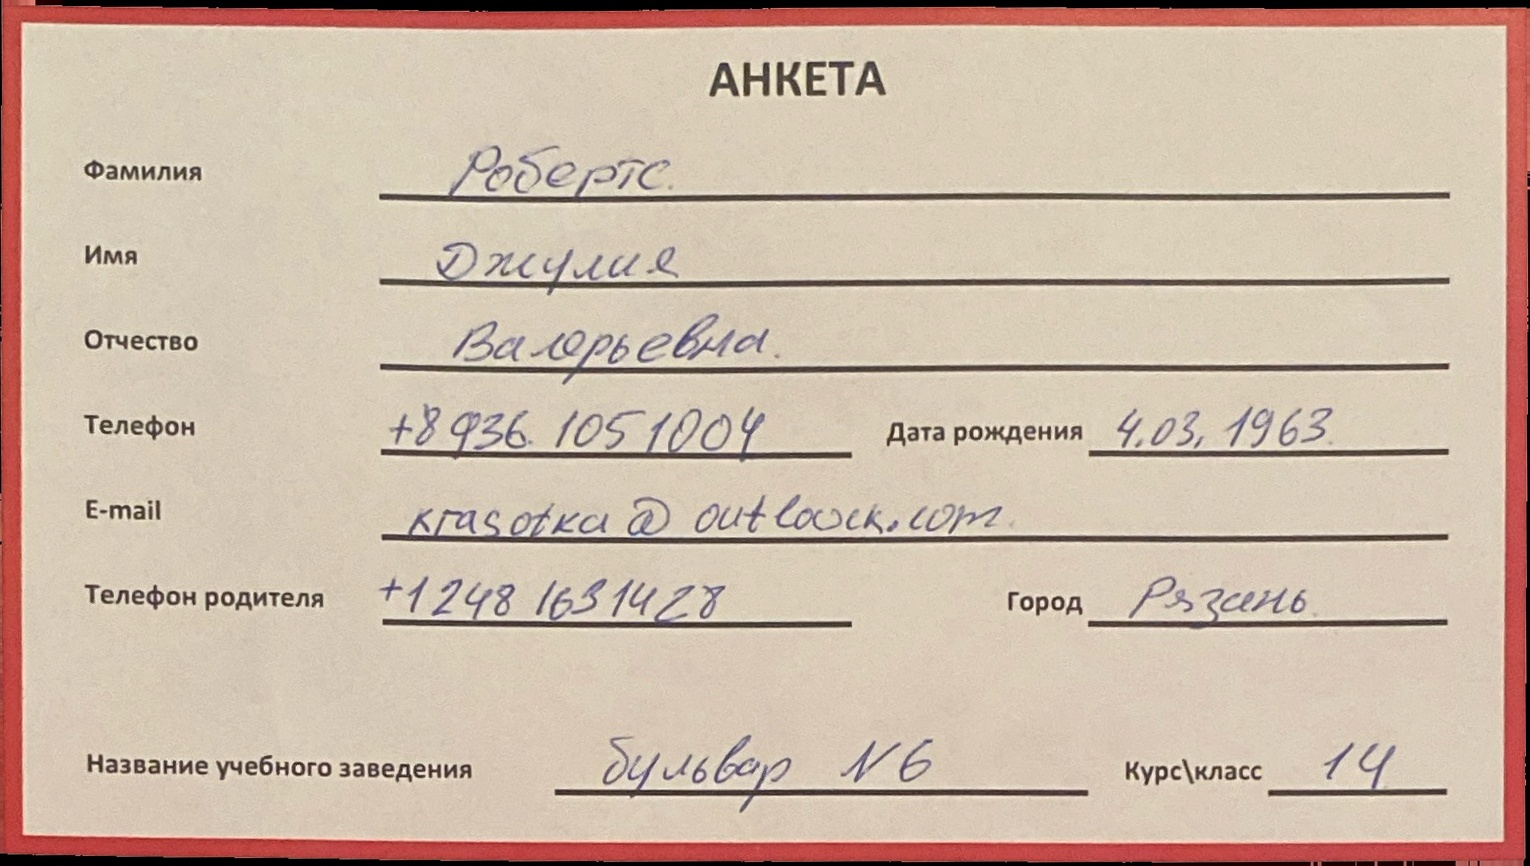 АНКЕТА
Фамилия Робертс.
Имя Джулия
Отчество Валерьевна.
Телефон +8 936. 105 1004 Дата рождения 4.03. 1963.
E-mail krasotka@outloock.com.
Телефон родителя +1 248 163 1428 Город Рязань.
Название учебного заведения бульвар N 6 Курс\класс 14